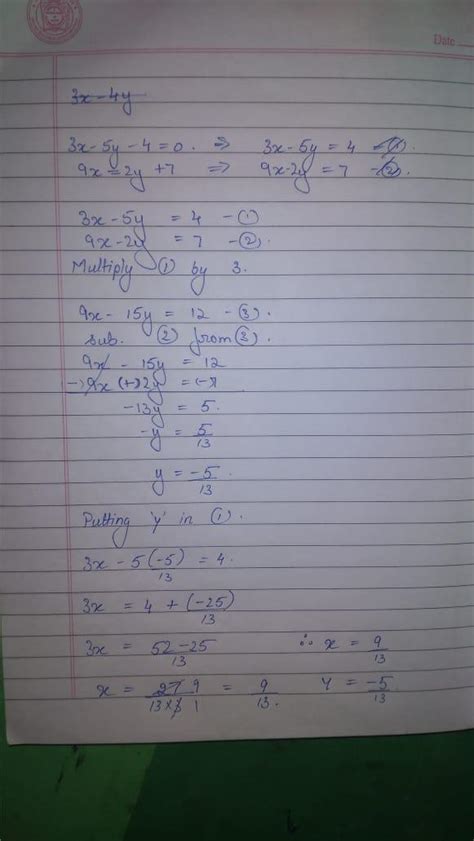 Date
3x - 4y
3x - 5y - 4 = 0. ⇒ 3x - 5y = 4 - (1).
9x = 2y + 7 ⇒ 9x - 2y = 7 - (2).
3x - 5y = 4 - (1)
9x - 2y = 7 - (2).
Multiply (1) by 3.
9x - 15y = 12 - (3).
sub. (2) from (3).
9x - 15y = 12
(-)9x (+)2y = (-)7
-13y = 5.
-y = 5/13
y = -5/13.
Putting 'y' in (1).
3x - 5(-5)/13 = 4.
3x = 4 + (-25)/13
3x = 52-25/13 ∴ x = 9/13
x = 27 9/13×3 1 = 9/13. Y = -5/13